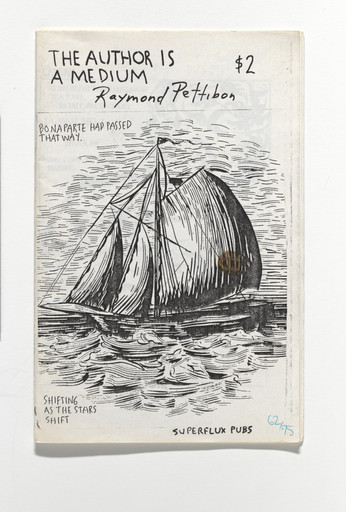 THE AUTHOR IS
A MEDIUM
$2
Raymond Pettibon
BONAPARTE HAD PASSED
THAT WAY.
SHIFTING
AS THE STARS
SHIFT
SUPERFLUX PUBS
62/75